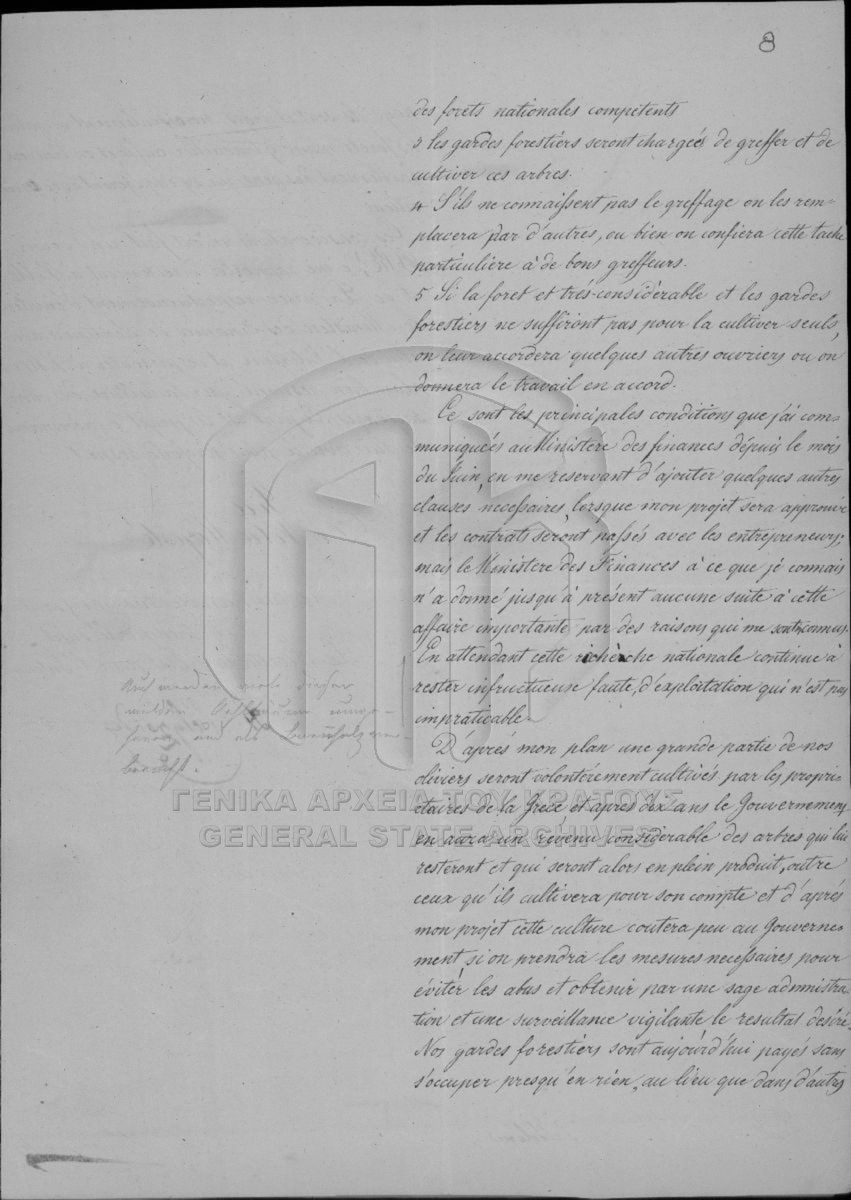 8
des forets nationales compétents
3 les gardes forestiers seront chargées de greffer et de
cultiver ces arbres.
4 S'ils ne connaissent pas le greffage on les rem-
placera par d'autres, ou bien on confiera cette tache
particulière à de bons greffeurs.
5 Si la foret et trés-considèrable et les gardes
forestiers ne suffiront pas pour la cultiver seuls,
on leur accordera quelques autres ouvriers ou on
donnera le travail en accord.
Ce sont les principales conditions que j'ai com-
muniqueés au Ministére des finances dépuis le mois
du Juin, en me reservant d'ajouter quelques autres
clauses necessaires, lorsque mon projet sera approuvé
et les contrats seront passés avec les entrepreneurs;
mais le Ministére des Finances à ce que je connais
n'a donné jusqu'à présent aucune suite à cette
affaire importante par des raisons qui me sont connus.
En attendant cette richèsche nationale continue à
rester infructueuse faute, d'exploitation qui n'est pas
impraticable.
Auch werden viele dieser
wilden Oelbäume umge-
hauen und als Brennholz ver-
braucht.
D'aprés mon plan une grande partie de nos
oliviers seront volontérement cultivés par les propri-
etaires de la Gréce et aprés dix ans le Gouvernement
en aura un révenu considerable des arbres qui lui
resteront et qui seront alors en plein produit, outre
ceux qu'ils cultivera pour son compte et d'aprés
mon projet cette culture coutera peu au Gouverne-
ment, si on prendra les mesures necessaires pour
éviter les abus et obtenir par une sage administra-
tion et une surveillance vigilante le resultat desiré.
Nos gardes forestiérs sont aujourd'hui payés sans
s'occuper presqu'en rien, au lieu que dans d'autres
ΓΕΝΙΚΑ ΑΡΧΕΙΑ ΤΟΥ ΚΡΑΤΟΥΣ
GENERAL STATE ARCHIVES